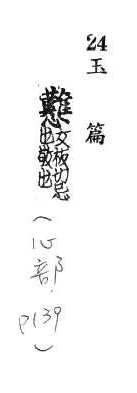 24
玉篇
戁女板切忌也敬也
(心部. P139)